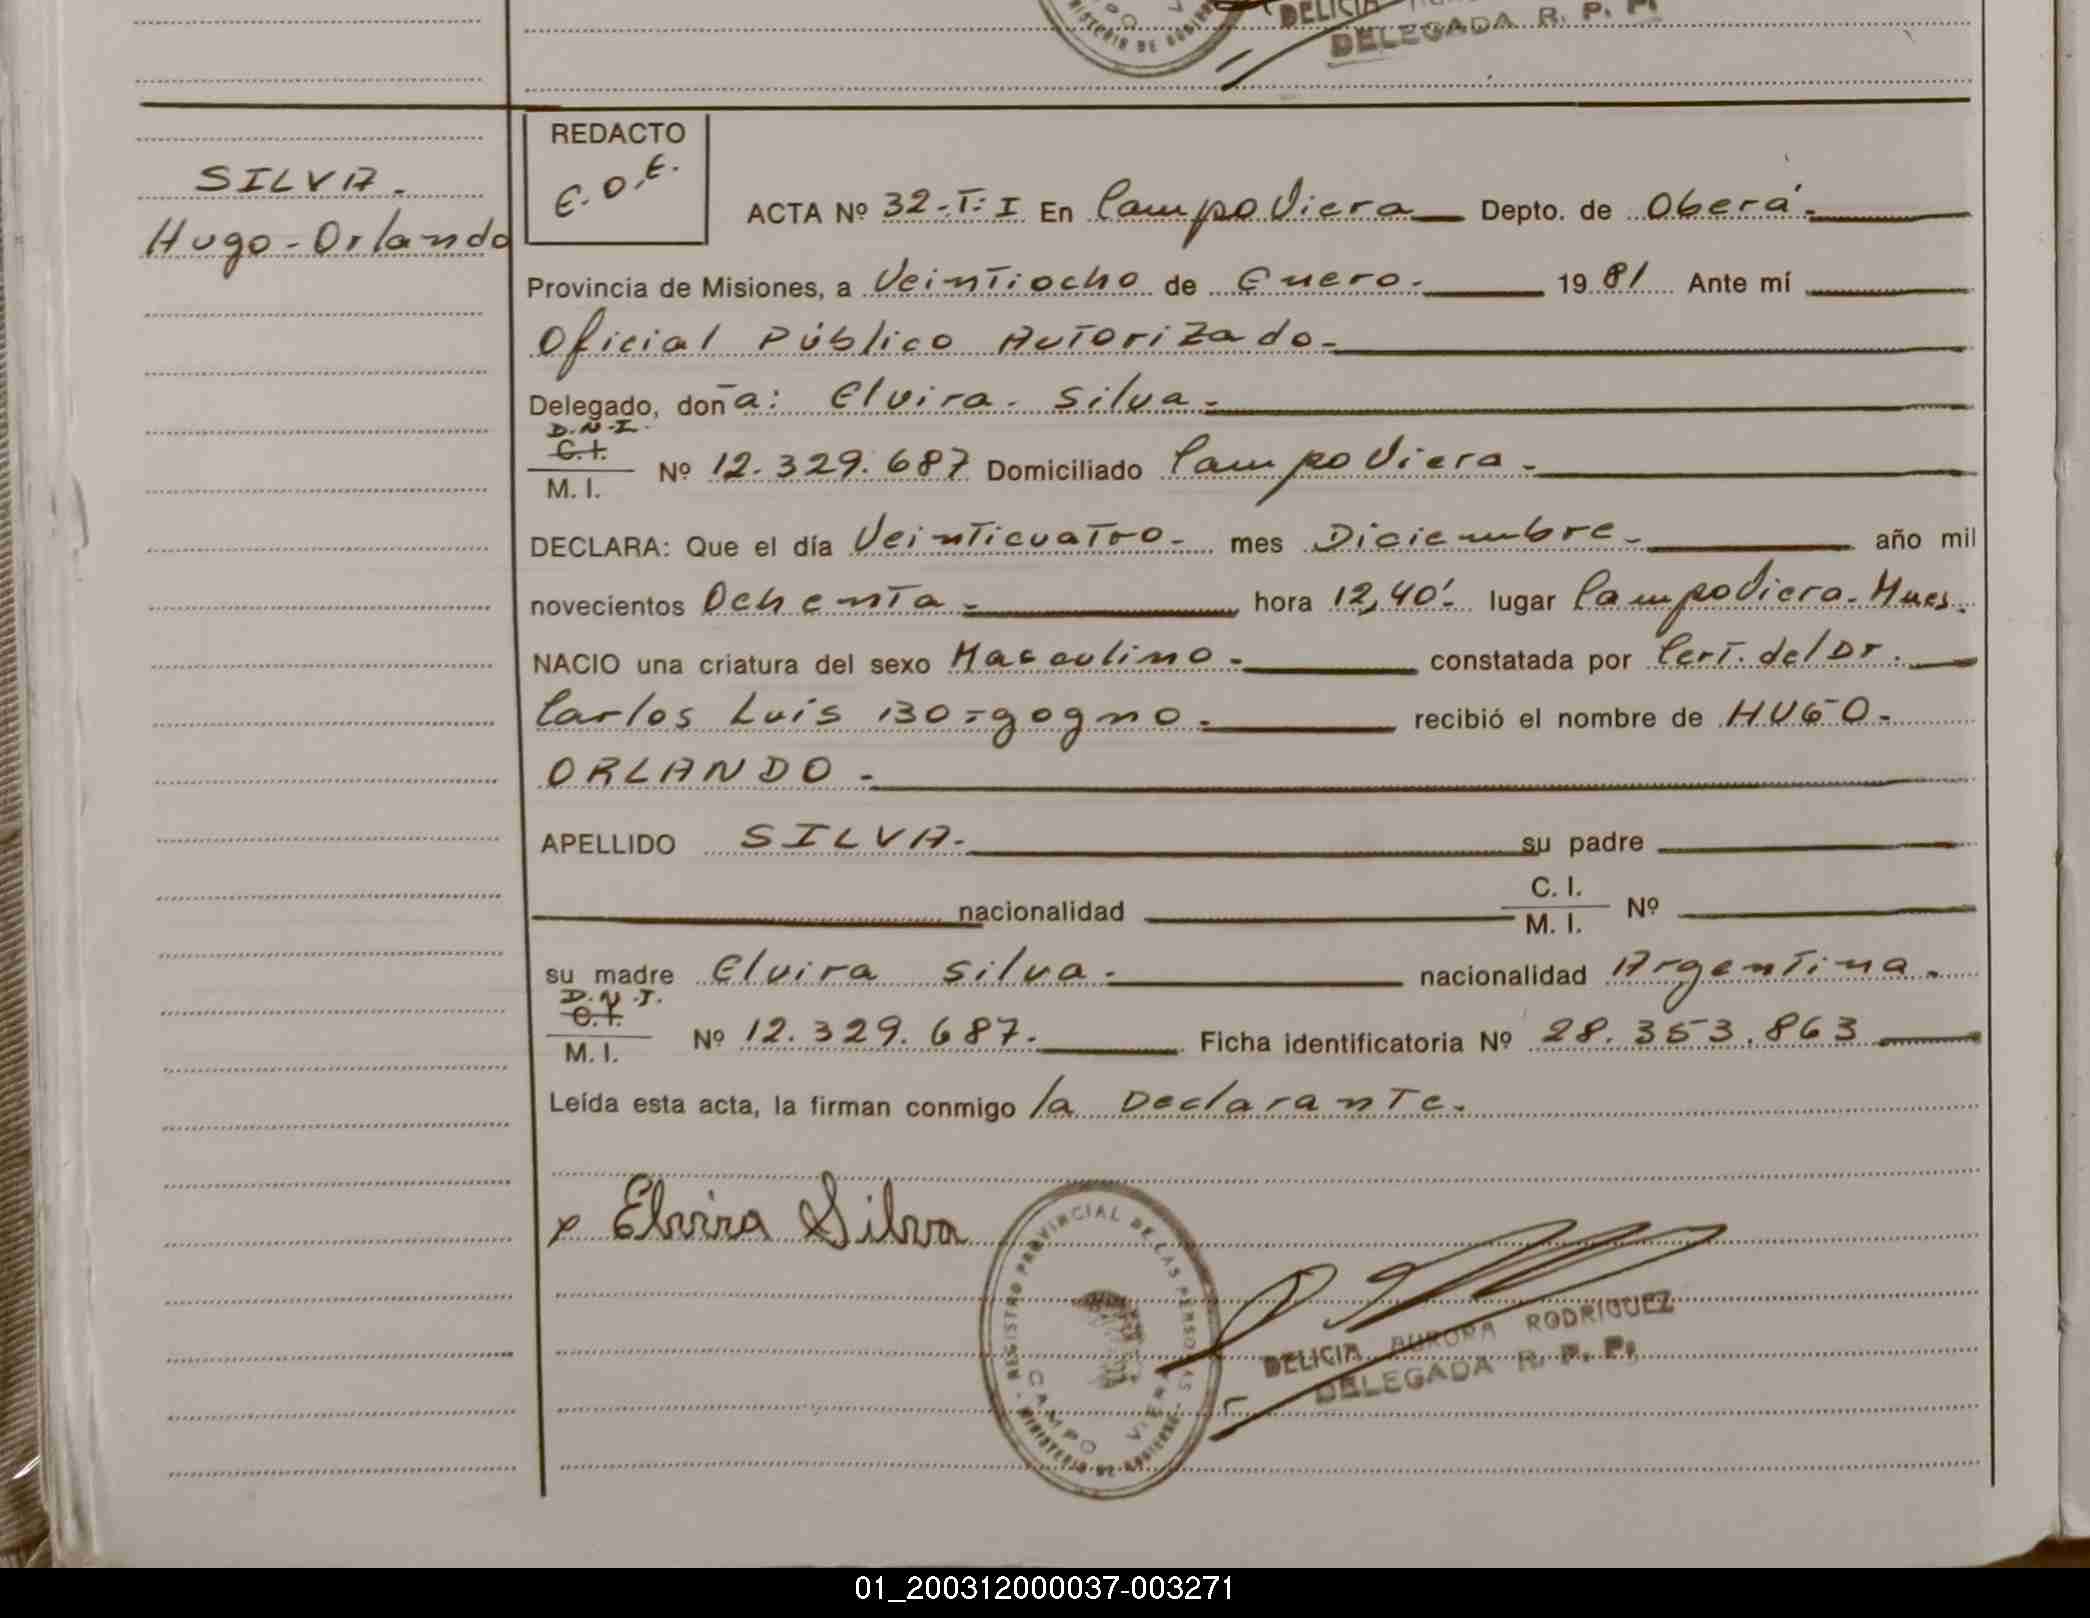 DELICIA
DELEGADA R. P. P.
SILVA.
Hugo-Orlando
REDACTO
E.O.E.
ACTA Nº 32-T:I En Campo Viera Depto. de Oberá.
Provincia de Misiones, a Veintiocho de Enero. 1981 Ante mí
Oficial Público Autorizado.
Delegado, doña: Elvira Silva.
D.N.I.
C.I.
M. I. Nº 12.329.687 Domiciliado Campo Viera.
DECLARA: Que el día Veinticuatro. mes Diciembre. año mil
novecientos Ochenta. hora 12,40'. lugar Campo Viera.
NACIO una criatura del sexo Masculino. constatada por Cert. del Dr.
Carlos Luis Borgogno. recibió el nombre de HUGO-
ORLANDO.
APELLIDO SILVA. su padre
nacionalidad C. I.
M. I. Nº
su madre Elvira Silva. nacionalidad Argentina.
D.N.I.
C.I.
M. I. Nº 12.329.687. Ficha identificatoria Nº 28.353.863
Leída esta acta, la firman conmigo la Declarante.
x Elvira Silva
REGISTRO PROVINCIAL DE LAS PERSONAS
CAMPO VIERA
MINISTERIO DE GOBIERNO
DELICIA AURORA RODRIGUEZ
DELEGADA R. P. P.
01_200312000037-003271